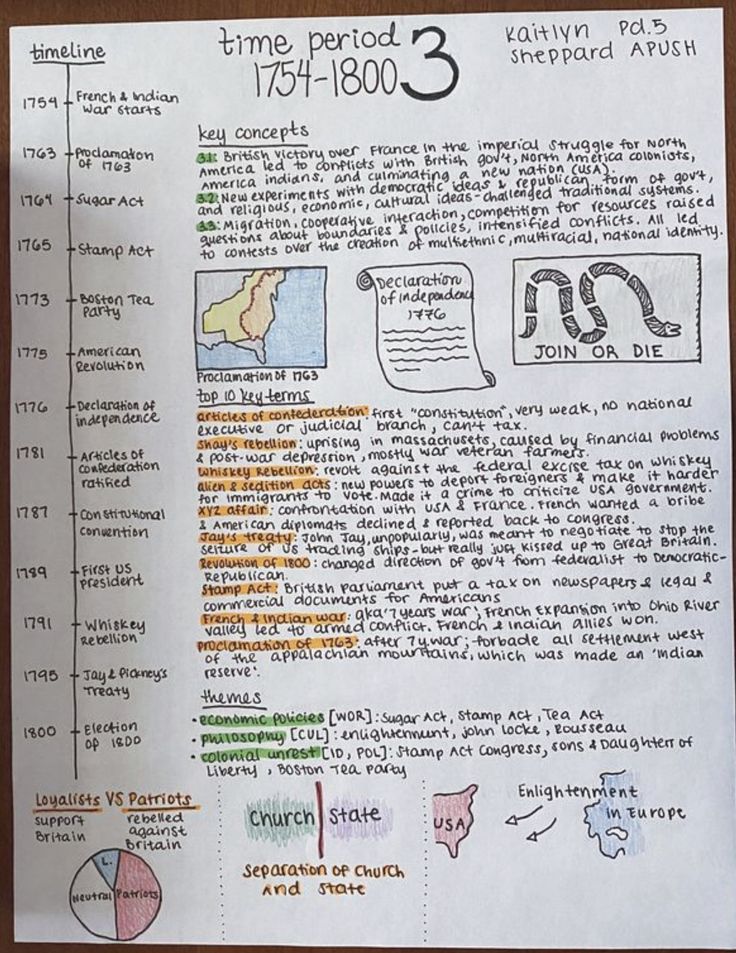 time period 3
1754-1800
Kaitlyn Pd.5
Sheppard APUSH
timeline
1754 French & Indian
War starts
1763 Proclamation
of 1763
1764 Sugar Act
1765 Stamp Act
1773 Boston Tea
Party
1775 American
Revolution
1776 Declaration of
independence
1781 Articles of
confederation
ratified
1787 Constitutional
Convention
1789 First US
President
1791 Whiskey
Rebellion
1795 Jay & Pickney's
Treaty
1800 Election
of 1800
key concepts
3.1: British victory over France in the imperial struggle for North
America led to conflicts with British gov't, North America colonists,
America indians, and culminating a new nation (USA).
3.2: New experiments with democratic ideas & republican form of gov't,
and religious, economic, cultural ideas-challenged traditional systems.
3.3: Migration, cooperative interaction, competition for resources raised
questions about boundaries & policies, intensified conflicts. All led
to contests over the creation of multiethnic, multiracial, national identity.
Proclamation of 1763
Declaration
of independence
1776
JOIN OR DIE
top 10 key terms
articles of confederation: first "constitution", very weak, no national
executive or judicial branch, can't tax.
Shay's rebellion: uprising in massachusets, caused by financial problems
& post-war depression, mostly war veteran farmers.
Whiskey Rebellion: revolt against the federal excise tax on whiskey
alien & sedition acts: new powers to deport foreigners & make it harder
for immigrants to vote. Made it a crime to criticize USA government.
XYZ affair: confrontation with USA & France. French wanted a bribe
& American diplomats declined & reported back to congress.
Jay's treaty: John Jay, unpopularly, was meant to negotiate to stop the
seizure of US trading ships - but really just kissed up to Great Britain.
Revolution of 1800: changed direction of gov't from federalist to Democratic-
Republican.
Stamp Act: British Parliament put a tax on newspapers & legal &
commercial documents for Americans
French & Indian war: aka '7 years war', French Expansion into Ohio River
valley led to armed conflict. French & Indian allies won.
Proclamation of 1763: after 7y.war; forbade all settlement west
of the appalachian mountains, which was made an 'Indian
reserve'.
themes
• economic policies [WOR]: Sugar Act, Stamp Act, Tea Act
• philosophy [CUL]: enlightennunt, john locke, Rousseau
• colonial unrest [ID, POL]: Stamp Act Congress, sons & Daughters of
Liberty, Boston Tea Party
Loyalists VS Patriots
support
Britain
rebelled
against
Britain
L.
Neutral
Patriots
Church State
Separation of Church
And State
USA
Enlightenment
in Europe